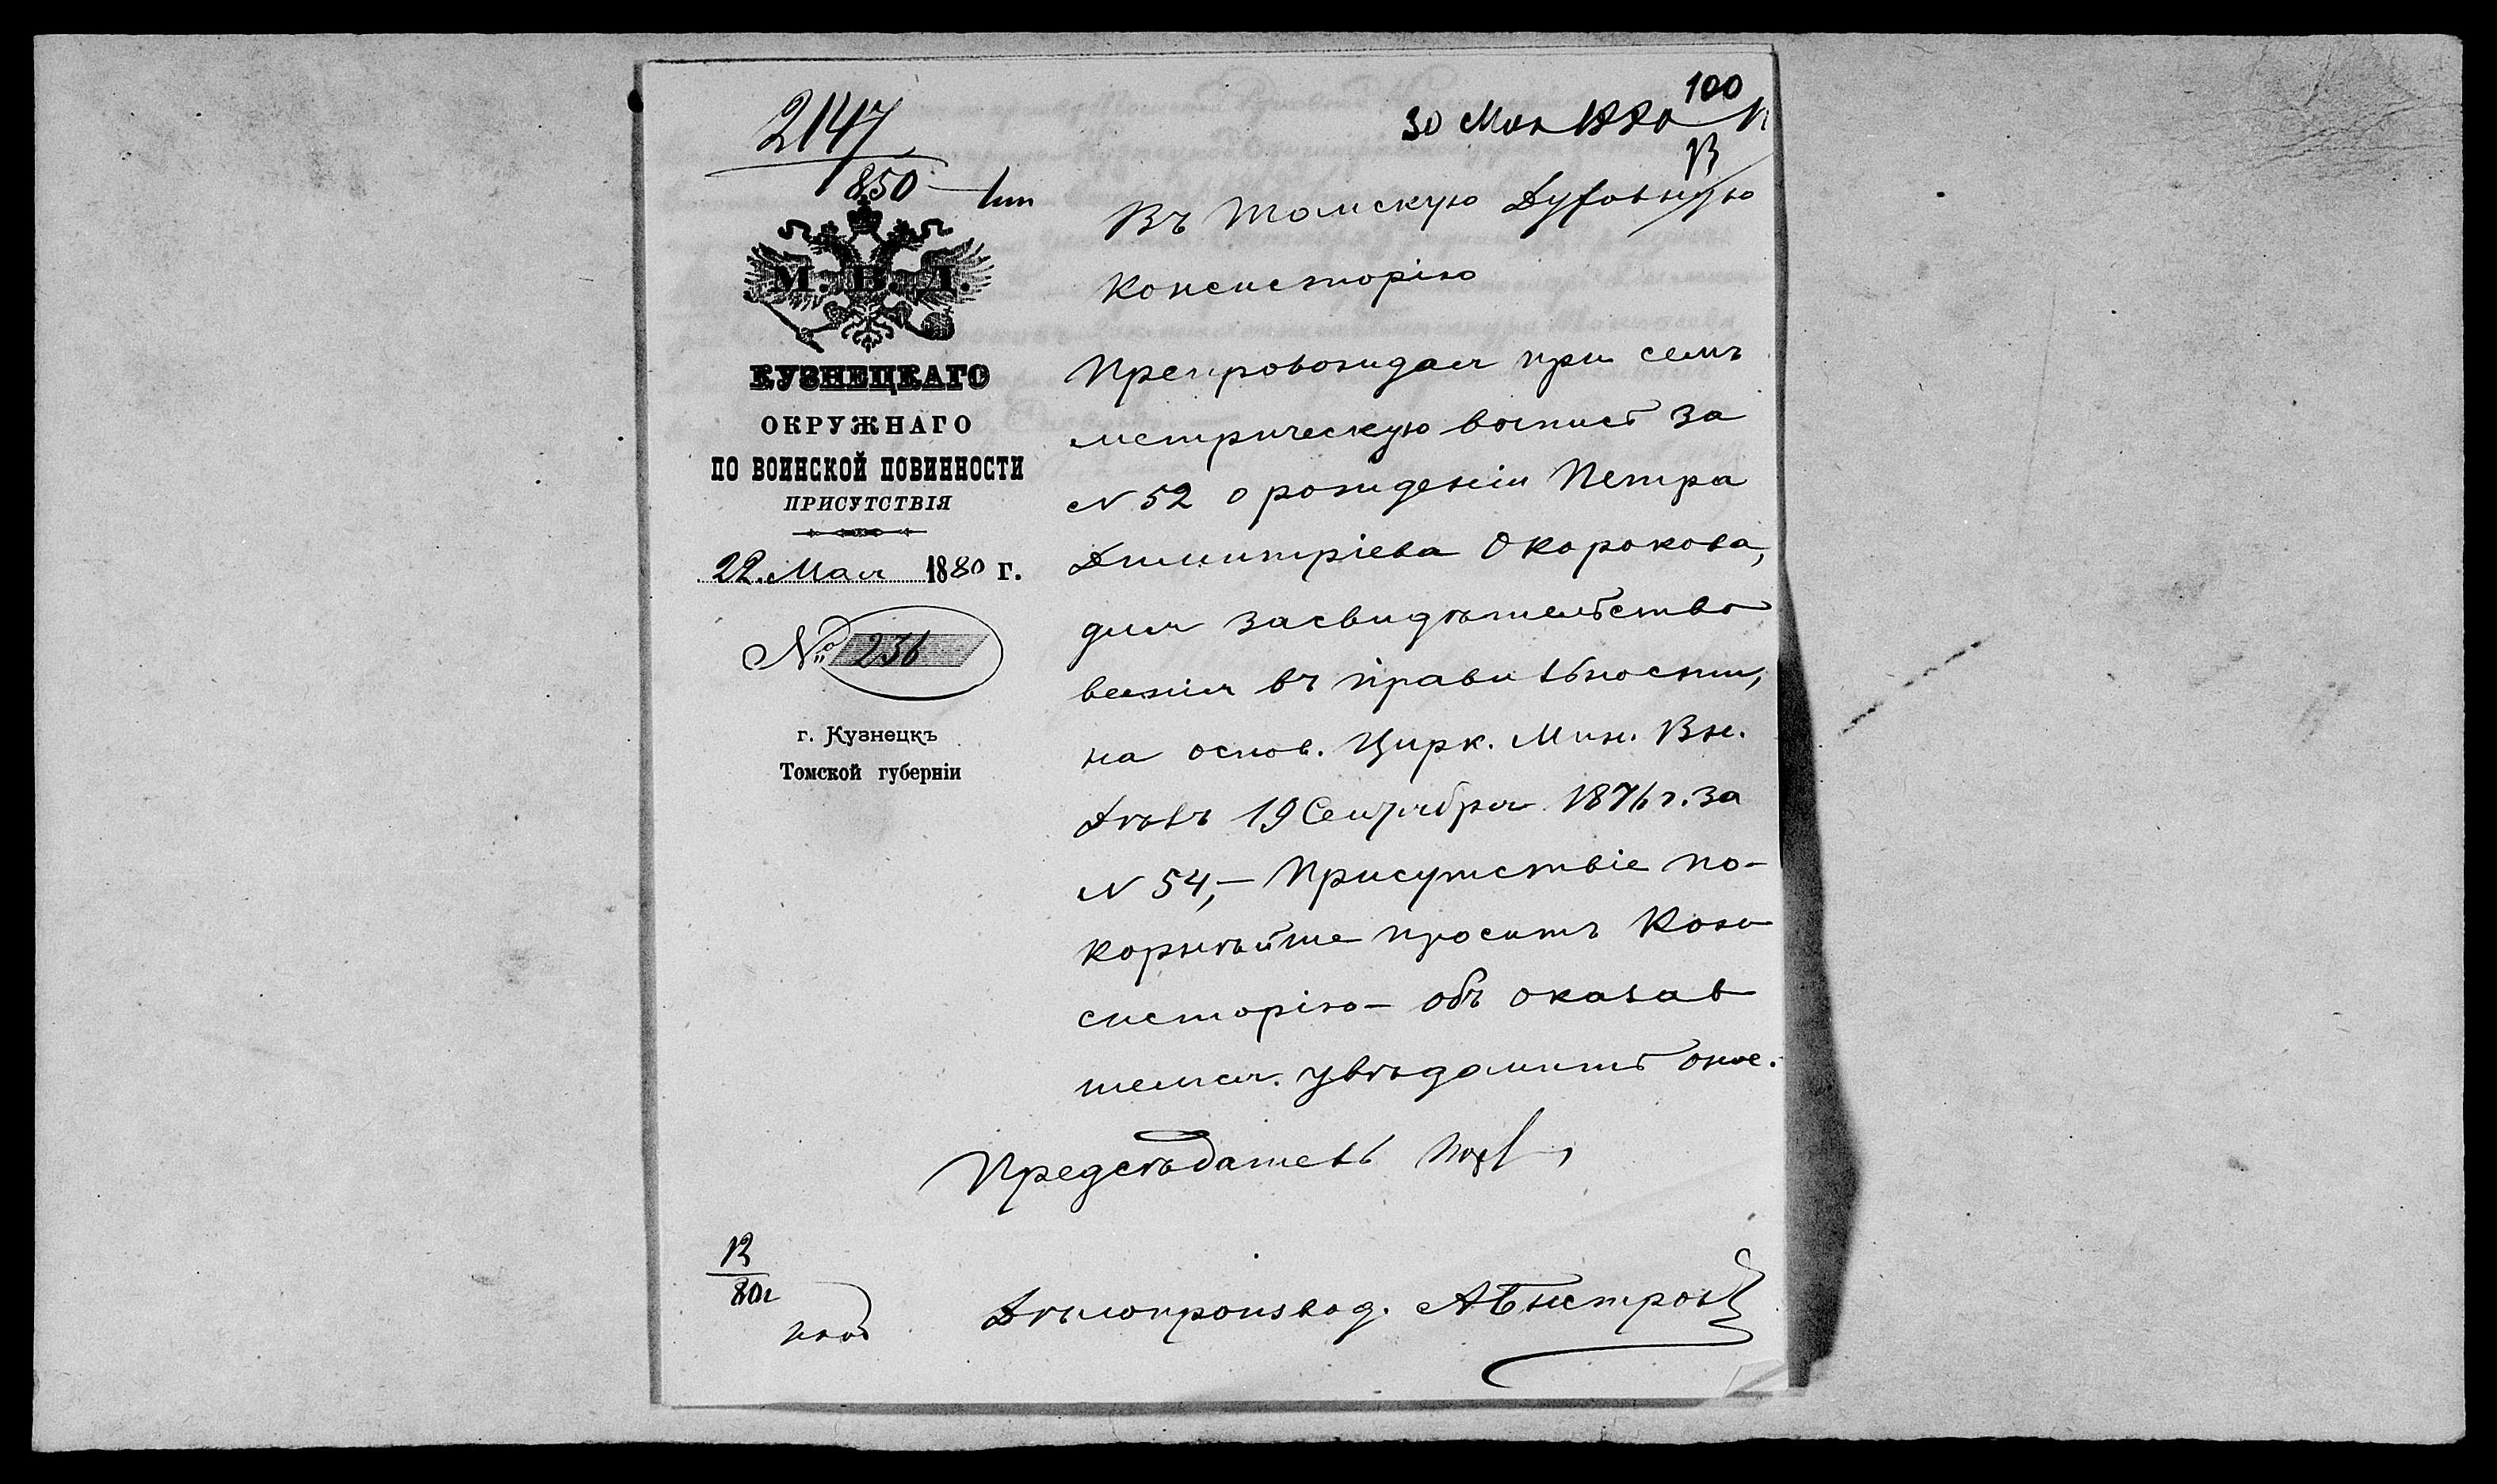 100
30 Мая 1880
В
2147
850
М. В. Д.
КУЗНЕЦКАГО
ОКРУЖНАГО
ПО ВОИНСКОЙ ПОВИННОСТИ
ПРИСУТСТВІЯ
22 Мая 1880 г.
№ 236
г. Кузнецкъ
Томской губерніи
Въ Томскую Духовную
Консисторію
Препровождая при семъ
метрическую выпись за
N 52 о рожденіи Петра
Димитріева Окорокова,
для засвидѣтельство
ванія въ правильности,
на основ. Цирк. Мин. Вн.
Дѣлъ 19 Сентября 1876 г. за
N 54,– Присутствіе по–
корнѣйше проситъ Кон
систорію– объ оказав
шемся. увѣдомить оное.
Предсѣдатель
В
80 г
Дѣлопроизвод. АБыстровъ